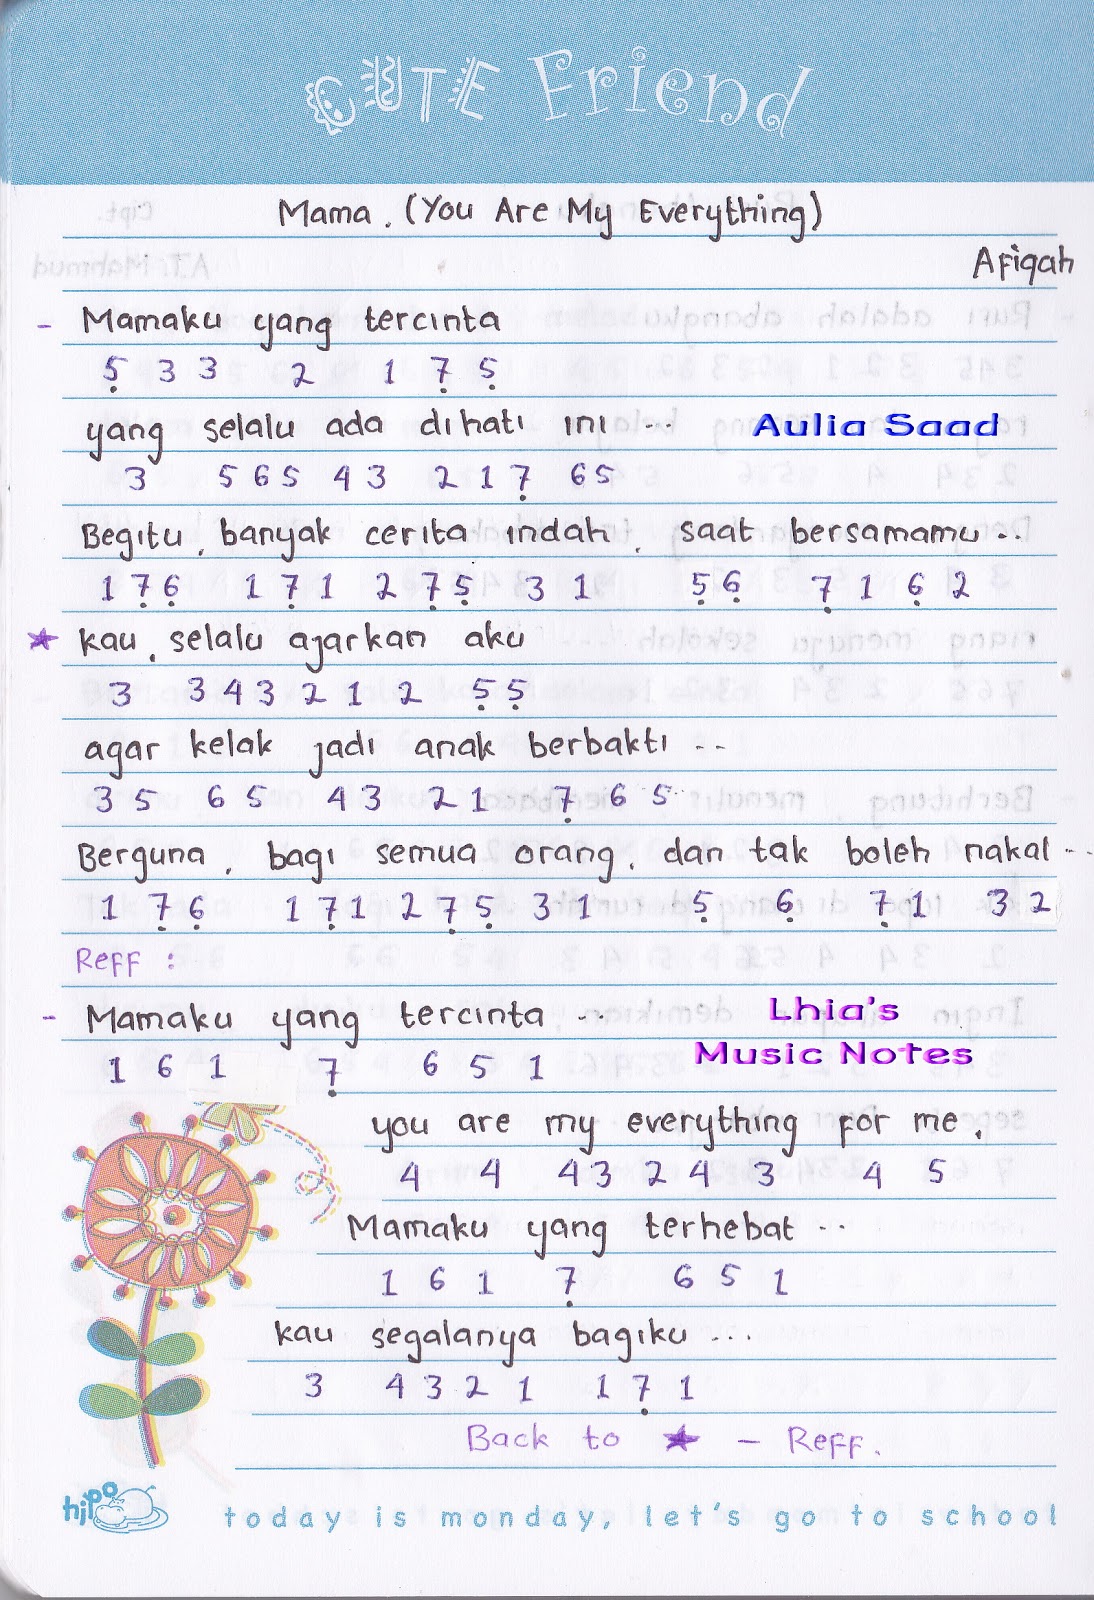 CUTE Friend
Mama. (You Are My Everything)
Afiqah
- Mamaku yang tercinta
5̣ 3 3 2 1 7̣ 5̣
yang selalu ada dihati ini ...
Aulia Saad
3 5 6 5 4 3 2 1 7̣ 6 5
Begitu, banyak cerita indah, saat bersamamu..
1 7̣ 6̣ 1 7̣ 1 2 7̣ 5̣ 3 1 5̣ 6̣ 7̣ 1 6̣ 2
★ kau, selalu ajarkan aku
3 3 4 3 2 1 2 5̣ 5̣
agar kelak jadi anak berbakti ..
3 5 6 5 4 3 2 1 7̣ 6 5
Berguna, bagi semua orang, dan tak boleh nakal ..
1 7̣ 6̣ 1 7̣ 1 2 7̣ 5̣ 3 1 5̣ 6̣ 7̣ 1 3 2
Reff :
- Mamaku yang tercinta ...
Lhia's
Music Notes
1 6 1 7̣ 6 5 1
you are my everything for me,
4 4 4 3 2 4 3 4 5
Mamaku yang terhebat ..
1 6 1 7̣ 6 5 1
kau segalanya bagiku ...
3 4 3 2 1 1 7̣ 1
Back to ★ - Reff.
hipo
today is monday, let's go to school